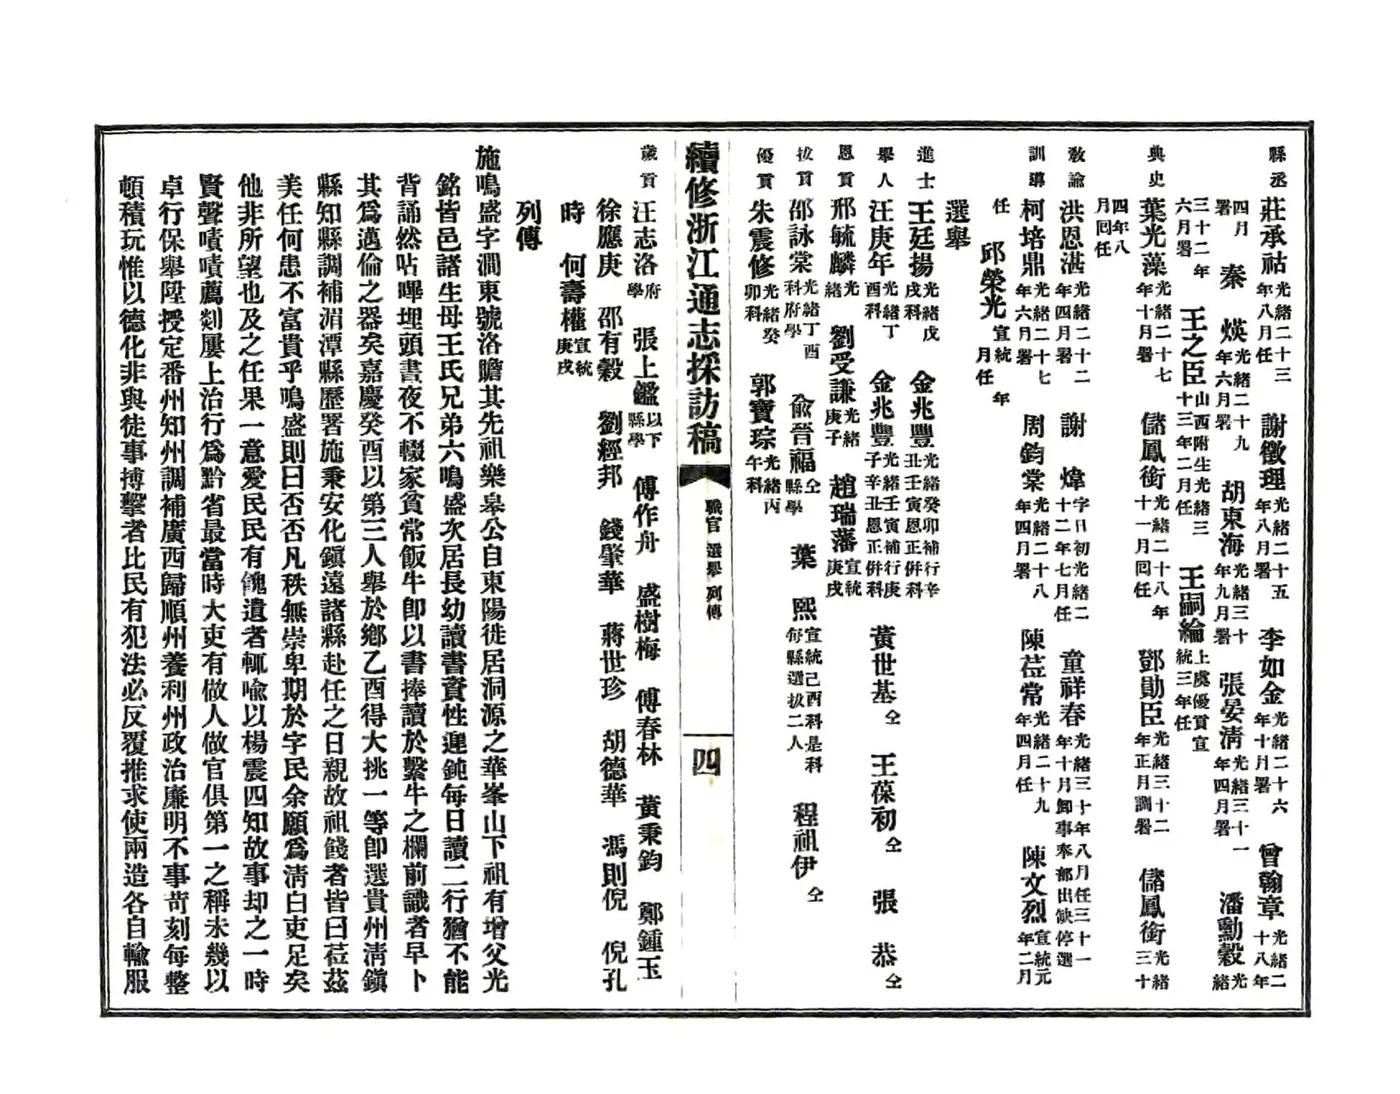 縣丞 莊承祜光緒二十三年八月任 謝徵理光緒二十五年八月署 李如金光緒二十六年十月署 曾翰章光緒二十八年
四月署 秦煐光緒二十九年六月署 胡東海光緒三十年九月署 張晏清光緒三十一年四月署 潘勳穀光緒
三十二年六月署 王之臣山西附生光緒三十三年二月任 王嗣綸上虞優貢宣統三年任
典史 葉光藻光緒二十七年十月署 儲鳳銜光緒二十八年十一月回任 鄧勛臣光緒三十二年正月調署 儲鳳銜光緒三十
四年八月回任
教諭 洪恩湛光緒二十二年四月署 謝煒字日初光緒二十二年七月任 童祥春光緒三十年八月任三十一年十月卸事奉部出缺停選
訓導 柯培鼎光緒二十七年六月署 周鈞棠光緒二十八年四月署 陳莅常光緒二十九年四月任 陳文烈宣統元年二月
任 邱榮光宣統年月任
選舉
進士 王廷揚光緒戊戌科 金兆豐光緒癸卯補行辛丑壬寅恩正併科
舉人 汪庚年光緒丁酉科 金兆豐光緒壬寅補行庚子辛丑恩正併科 黃世基仝 王葆初仝 張恭仝
恩貢 邢毓麟光緒 劉受謙光緒庚子 趙瑞藩宣統庚戌
拔貢 邵詠棠光緒丁酉科府學 俞晉福仝縣學 葉熙宣統己酉科是科每縣選拔二人 程祖伊仝
優貢 朱震修光緒癸卯科 郭寶琮光緒丙午科
續修浙江通志採訪稿 職官 選舉 列傳 四
歲貢 汪志洛府學 張上鑑以下縣學 傅作舟 盛樹梅 傅春林 黃秉鈞 鄭鍾玉
徐應庚 邵有穀 劉經邦 錢肇華 蔣世珍 胡德華 馮則倪 倪孔
時 何壽權宣統庚戌
列傳
施鳴盛字澗東號洛瞻其先祖樂皋公自東陽徙居洞源之華峯山下祖有增父光
銘皆邑諸生母王氏兄弟六鳴盛次居長幼讀書資性遲鈍每日讀二行猶不能
背誦然呫嗶埋頭晝夜不輟家貧常飯牛卽以書捧讀於繫牛之欄前識者早卜
其爲邁倫之器矣嘉慶癸酉以第三人舉於鄉乙酉得大挑一等卽選貴州淸鎭
縣知縣調補湄潭縣歷署施秉安化鎭遠諸縣赴任之日親故祖餞者皆曰莅茲
美任何患不富貴乎鳴盛則曰否否凡秩無崇卑期於字民余願爲淸白吏足矣
他非所望也及之任果一意愛民民有餽遺者輒喩以楊震四知故事却之一時
賢聲嘖嘖薦剡屢上治行爲黔省最當時大吏有做人做官俱第一之稱未幾以
卓行保舉陞授定番州知州調補廣西歸順州養利州政治廉明不事苛刻每整
頓積玩惟以德化非與徒事搏擊者比民有犯法必反覆推求使兩造各自輸服